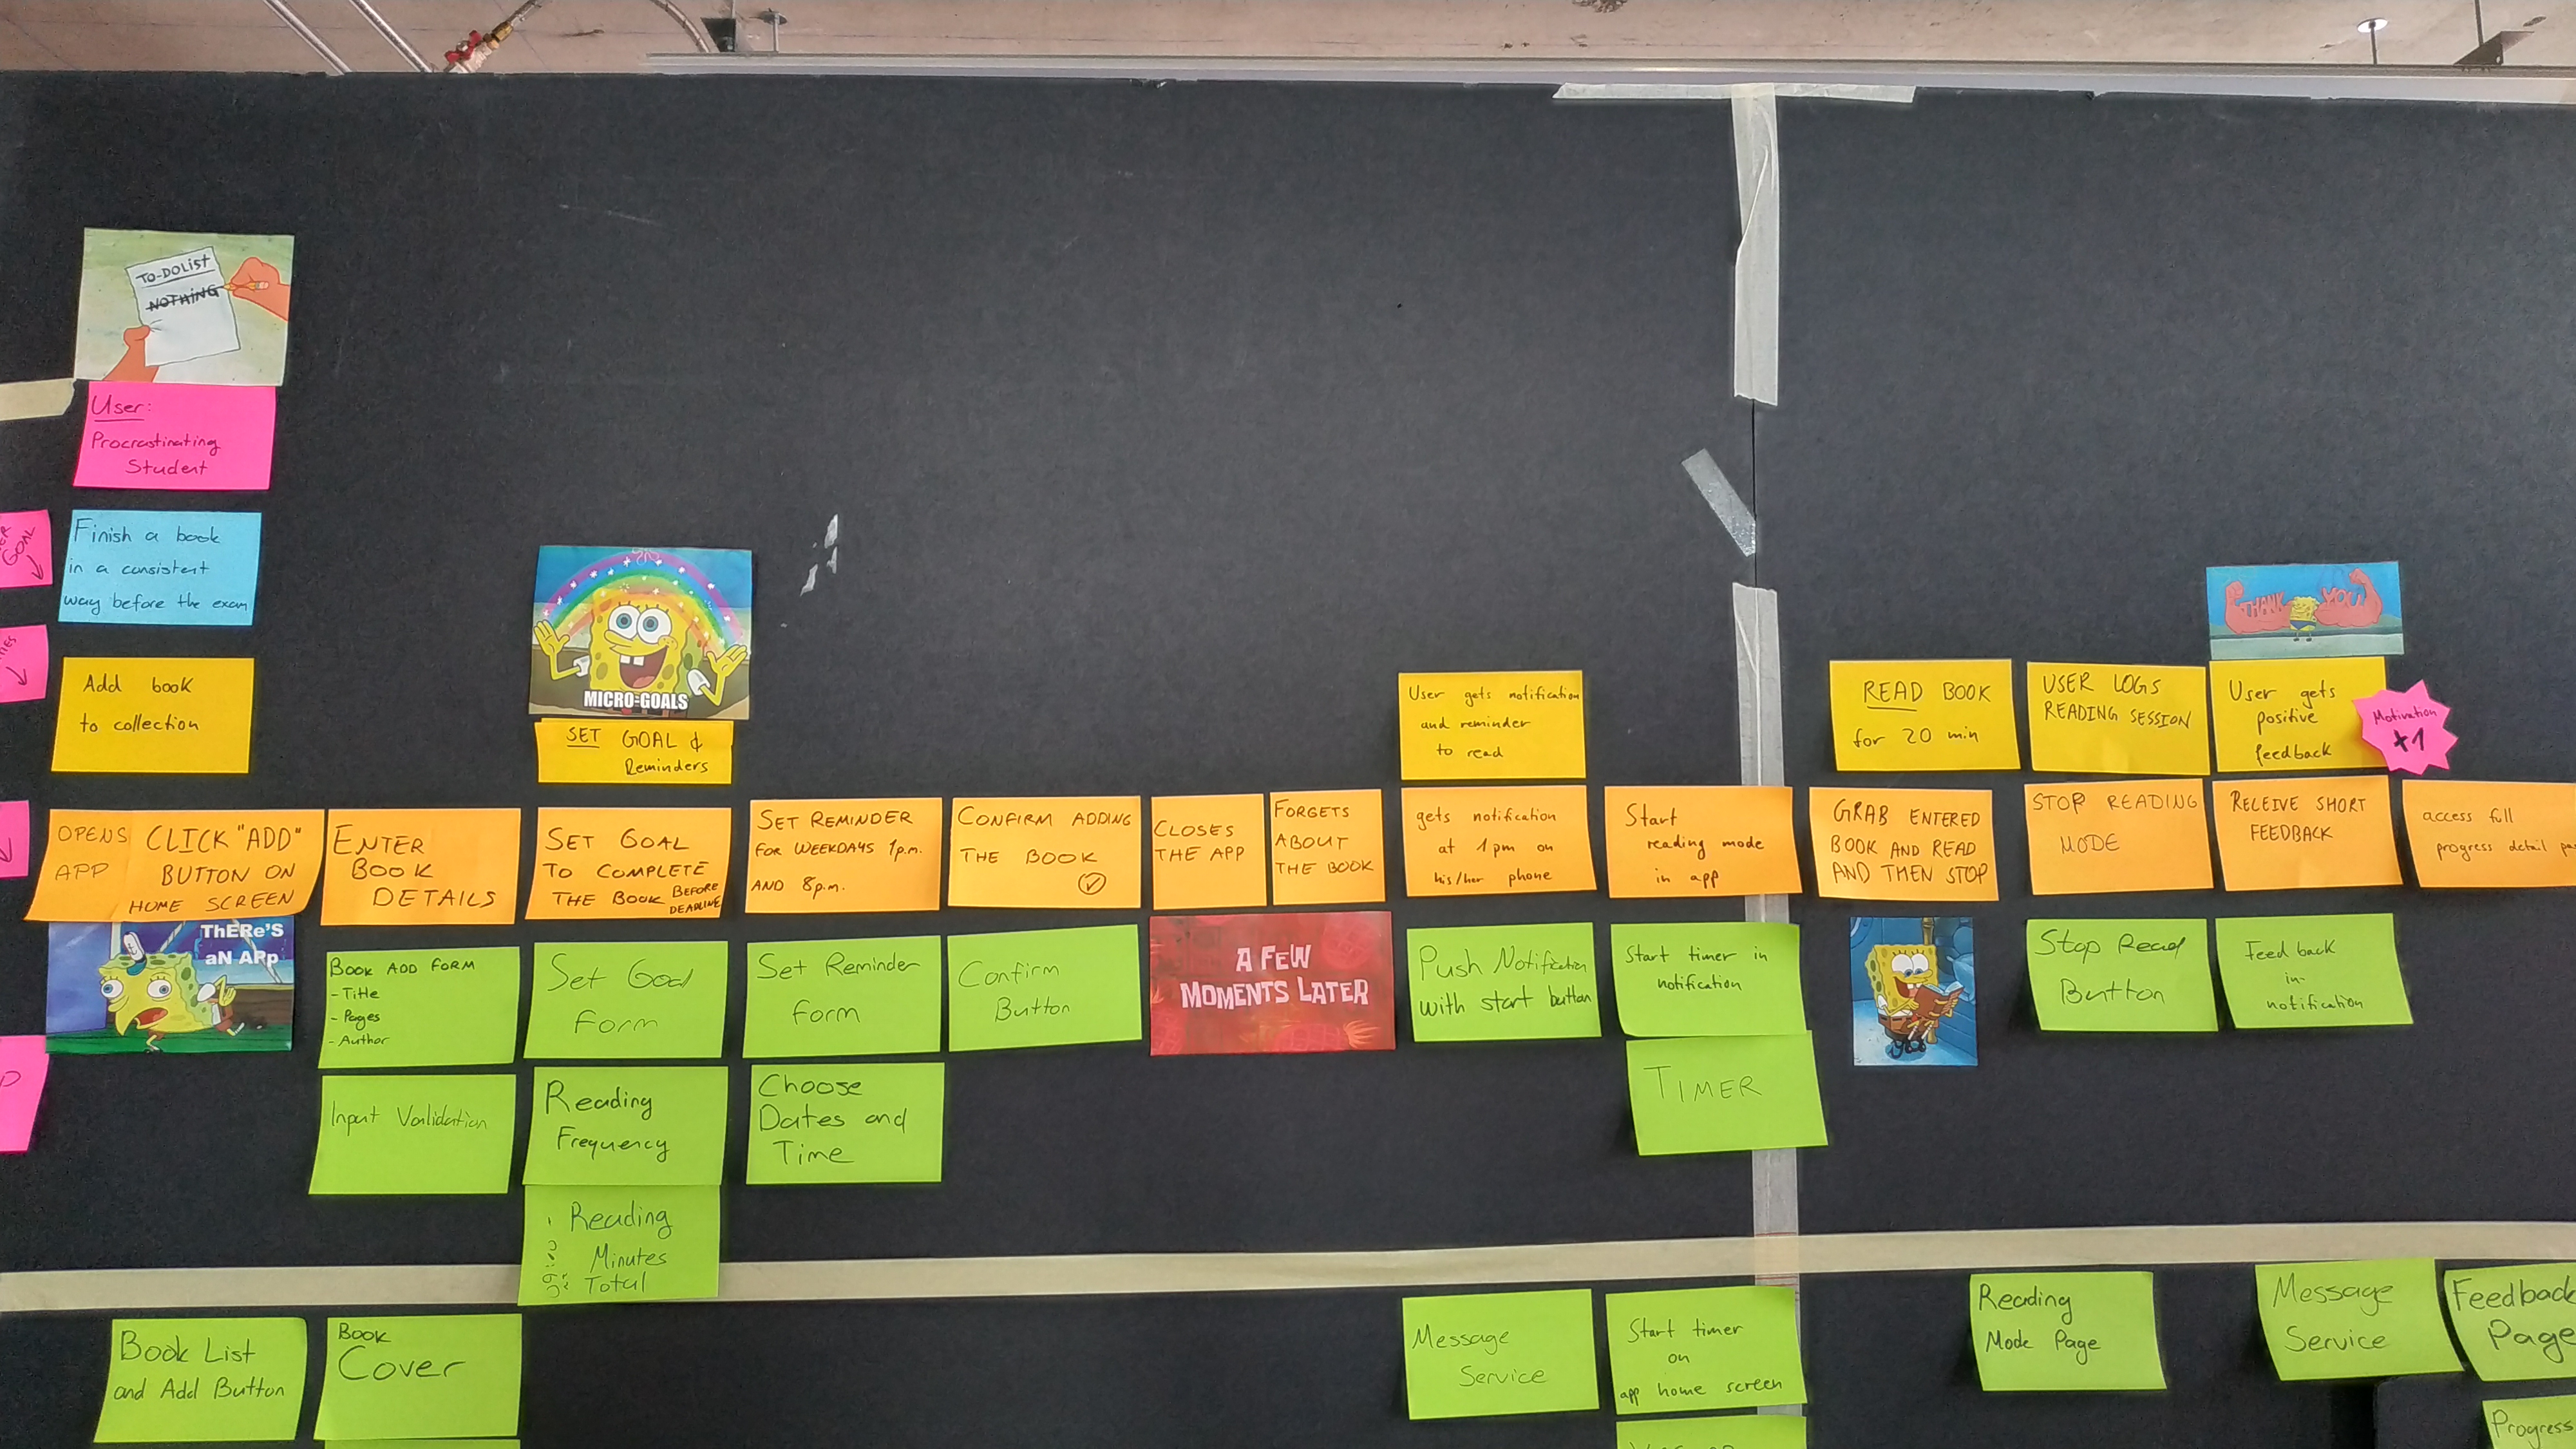 TO-DO LIST
NOTHING
User:
Procrastinating
Student
GOAL
Finish a book
in a consistent
way before the exam
Add book
to collection
MICRO-GOALS
SET GOAL &
Reminders
User gets notification
and reminder
to read
READ BOOK
for 20 min
USER LOGS
READING SESSION
THANK YOU
User gets
positive
feedback
Motivation
+1
OPENS
APP
CLICK "ADD"
BUTTON ON
HOME SCREEN
ENTER
BOOK
DETAILS
SET GOAL
TO COMPLETE
THE BOOK BEFORE
DEADLINE
SET REMINDER
FOR WEEKDAYS 1p.m.
AND 8p.m.
CONFIRM ADDING
THE BOOK
CLOSES
THE APP
FORGETS
ABOUT
THE BOOK
gets notification
at 1 pm on
his/her phone
Start
reading mode
in app
GRAB ENTERED
BOOK AND READ
AND THEN STOP
STOP READING
MODE
RELEIVE SHORT
FEEDBACK
access full
progress detail pa
ThERe'S
aN APp
BOOK ADD FORM
- Title
- Pages
- Author
Set Goal
Form
Set Reminder
form
Confirm
Button
A FEW
MOMENTS LATER
Push Notification
with start button
Start timer in
notification
Stop Read
Button
Feed back
in-
notification
Input Validation
Reading
Frequency
Choose
Dates and
Time
TIMER
Reading
Minutes
Total
Book List
and Add Button
BOOK
Cover
Message
Service
Start timer
on
app home screen
Reading
Mode Page
Message
Service
Feedback
Page
Progress